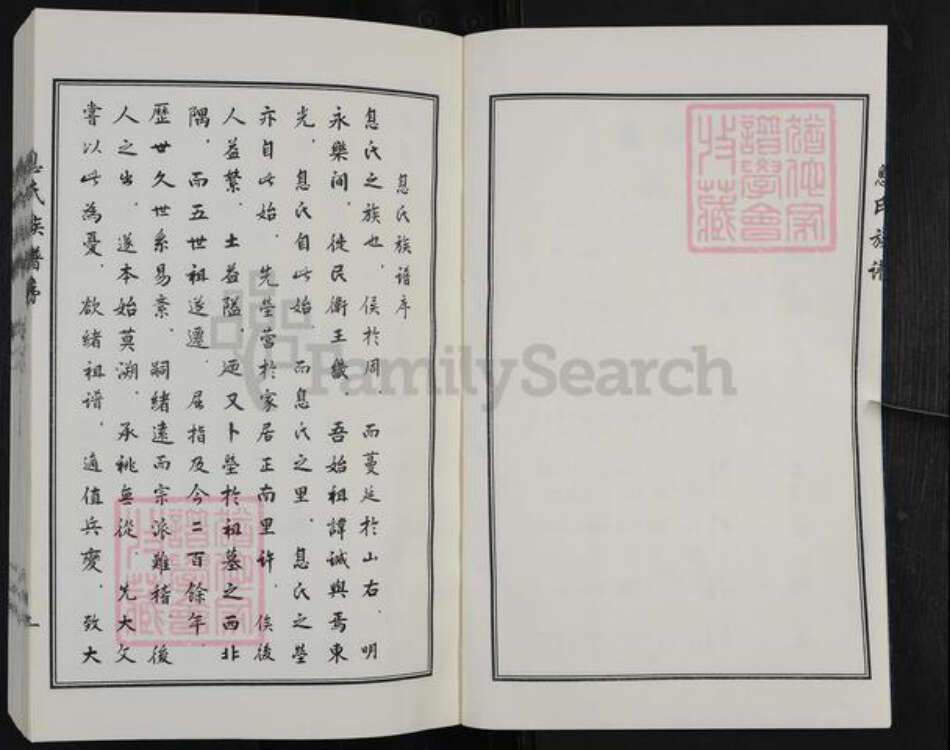 息氏族譜序
息氏之族也、侯於周、而蔓延於山右、明
永樂间、徙民衛王畿、吾始祖諱诚與焉東
光、息氏自此始、而息氏之里、息氏之塋
亦自此始、先塋营於家居正南里许、俟後
人益繁、土益隘、廼又卜塋於祖墓之西北
隅、而五世祖遂遷、屈指及今二百餘年、
歷世久世系易紊、嗣緒遠而宗派難稽、後
人之出、遂本始莫溯、承祧無從、先大父
嘗以此為憂、欲緒祖谱、適值兵變、致大
息氏族譜序
猶他家
譜學會
收藏
猶他家
譜學會
收藏
FamilySearch